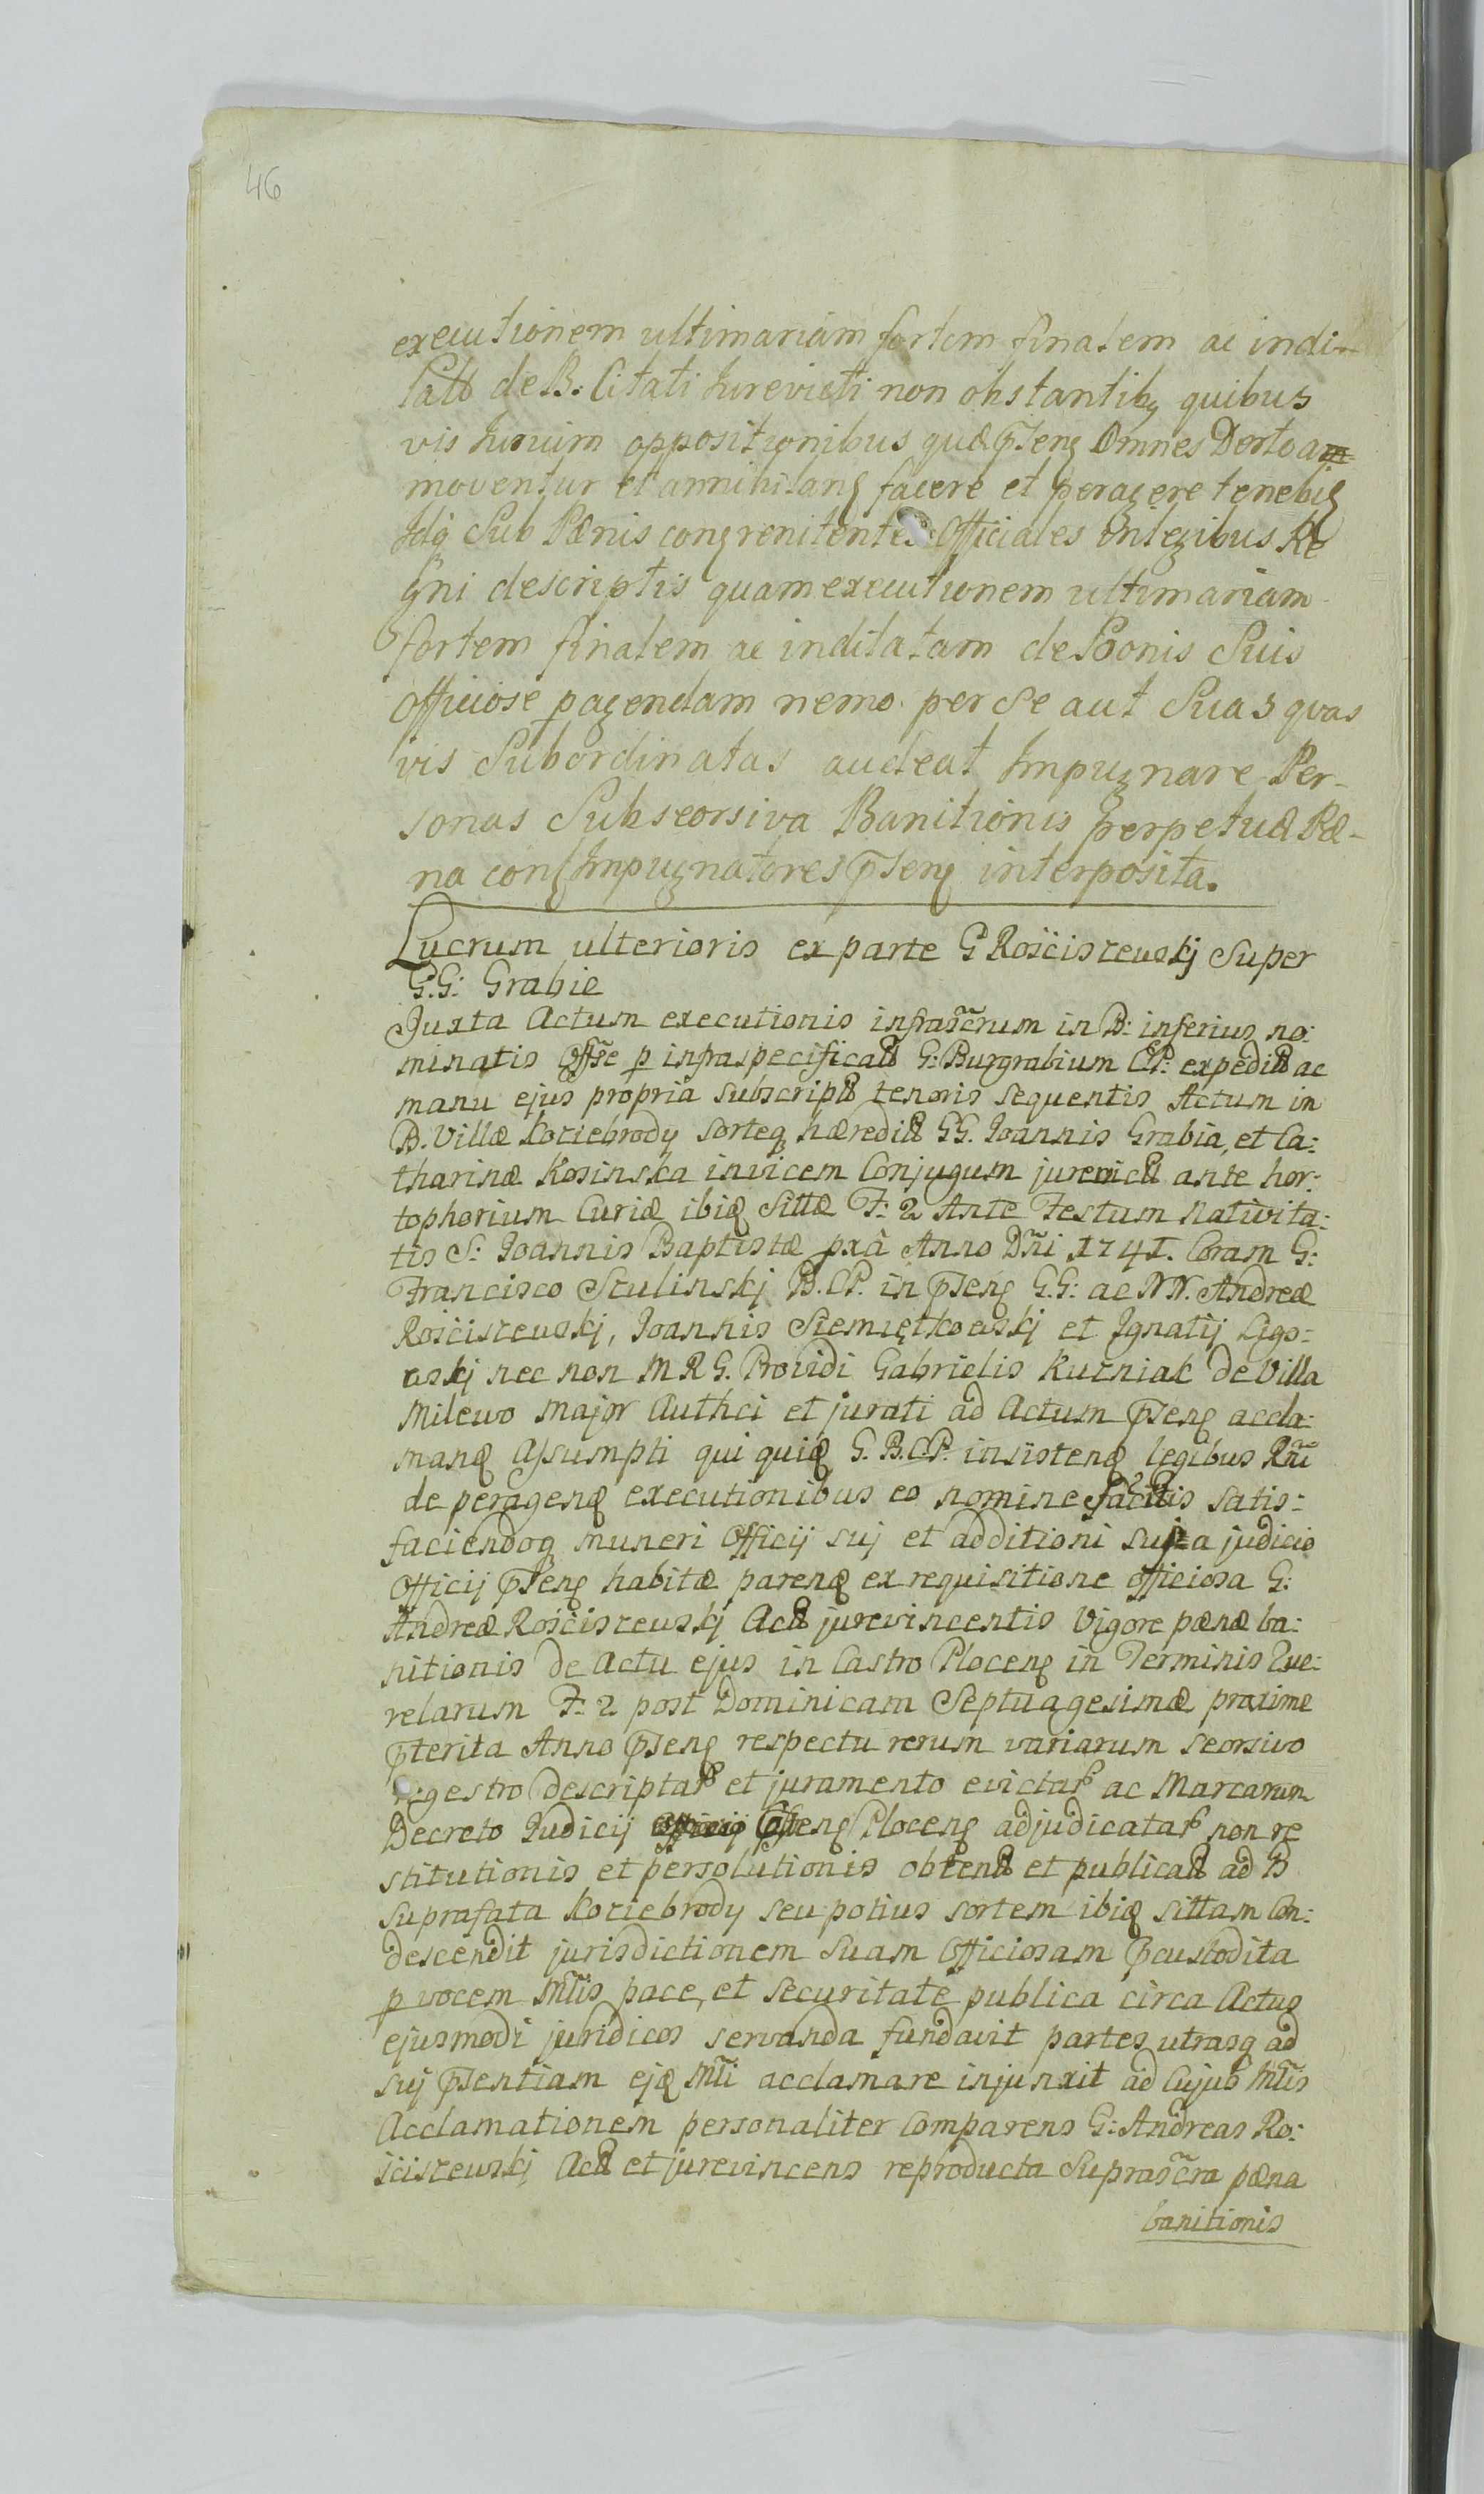 46
executionem ultimariam fortem finalem ac indi-
latt de B. Citati Jurevicti non obstantibq quibus
vis Jurium oppositionibus quæ p̄senq Omnes Dectoam-
moventur et annihilanq facere et peragere tenebiq
Idq Sub Pænis conq renitentes Officiales in legibus Re
gni descriptis quam executionem ultimariam
fortem finalem ac indilatam de Bonis Suis
officiose pagendam nemo per se aut Suas quas
vis Subordinatas audeat Impugnare Per-
sonas Sub seorsiva Banitionis perpetuæ Pæ-
na conq Impugnatores p̄senq interposita.
Lucrum ulterioris ex parte G Rościszewskj Super
G.G: Grabie
Juxta Actum executionis infrasc̃rum in B: inferius no:
minatis Offs̃e p infraspecificatt G: Burgrabium C.P: expeditt ac
manu ejus propria subscriptt tenoris sequentis Actum in
B. Villæ Koziebrody sorteq hæreditt GG. Joannis Grabia, et Ca:
tharinæ Kosinska invicem Conjugum jurevictt ante hor:
tophorium Curiæ ibiq Sittæ F: 2 Ante Festum Nativita:
tis S: Joannis Baptistæ pxâ Anno Dñi 1741. Coram G:
Francisco Sculinskj B.C.P. in p̄senq G.G: ac NN. Andreæ
Rościszewskj, Joannis Siemiętkowskj et Ignatij Ligo:
wskj nec non M R G. Providi Gabrielis Kuzniak de Villa
Milewo Major Authci et jurati ad Actum p̄senq accla:
manq Assumpti qui quiq G. B.C.P. insistenq legibus Rñi
de peragenq executionibus eo nomine facitis satis:
faciendoq muneri Officij suj et additioni supra judicio
Officij p̄senq habitæ parenq ex requisitione officiosa G:
Andreæ Rościszewskj Actt jurevincentis Vigore pænæ ba:
nitionis de Actu ejus in Castro Plocenq in Terminis Que:
relarum F: 2 post Dominicam Septuagesimæ proxime
p̄terita Anno p̄senq respectu rerum variarum seorsivo
regestro descriptaꝝ et juramento evictaꝝ ac Marcarum
Decreto Judicij p̄senq Plocenq adjudicataꝝ non re
stitutionis et persolutionis obtentt et publicatt ad B
Suprafata Koziebrody seu potius sortem ibiq sittam Con:
descendit jurisdictionem Suam Officiosam p̄custodita
p vocem Mtĩis pace, et securitate publica circa Actus
ejusmodi juridicos servanda fundavit partes utrasq ad
suj p̄sentiam ejq Mtĩi acclamare injunxit ad Cujus Mtĩis
Acclamationem personaliter Comparens G: Andreas Ro:
sciszewskj Actt et jurevincens reproducta Suprasc̃ra pæna
banitionis